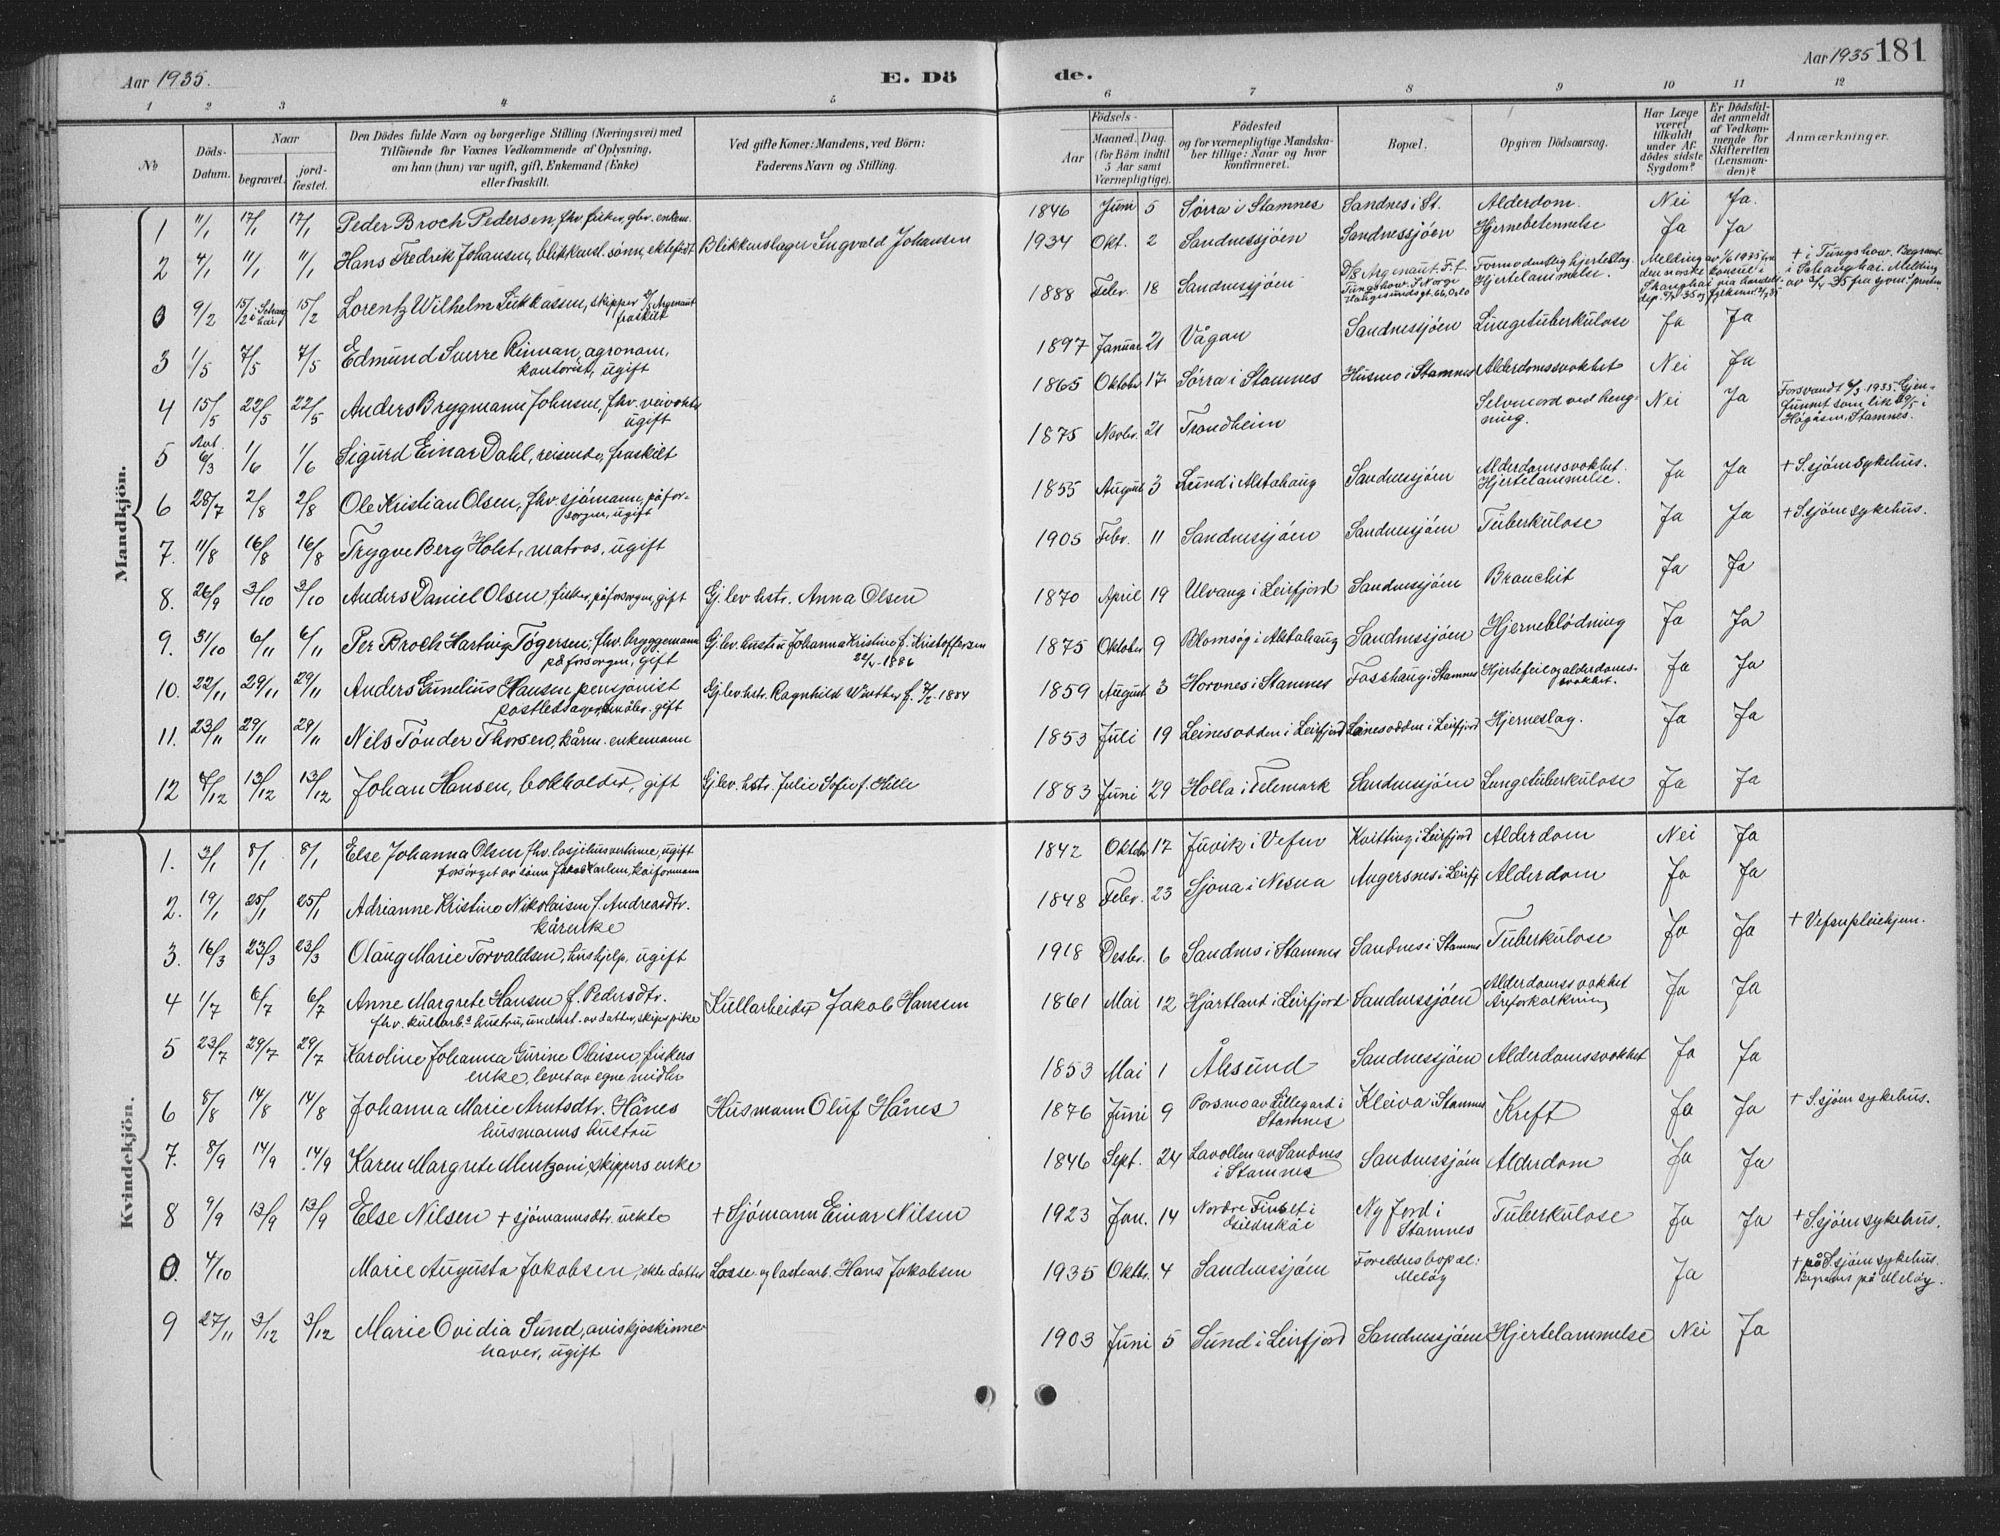 Aar 1935.
E. Dö
de.
Aar 1935 181
1 2 3 4 5 6 7 8 9 10 11 12
No
Döds-Datum.
Naar
begravet.
jord-fæstet.
Den Dödes fulde Navn og borgerlige Stilling (Næringsvei) med
Tilföiende for Voxnes Vedkommende af Oplysning,
om han (hun) var ugift, gift, Enkemand (Enke)
eller fraskilt.
Ved gifte Koner: Mandens, ved Börn:
Faderens Navn og Stilling.
Födsels-
Aar
Maaned. Dag.
(for Börn indtil
5 Aar samt
Værnepligtige).
Födested
og for værnepligtige Mandska-
ber tillige: Naar og hvor
konfirmeret.
Bopæl.
Opgiven Dödsaarsag.
Har Læge
været
tilkaldt
under Af-
dödes sidste
Sygdom?
Er Dödsfal-
det anmeldt
af Vedkom-
mende for
Skifteretten
(Lensman-
den)?
Anmærkninger.
Mandkjön.
1 11/1 17/1 17/1 Peder Broch Pedersen, fhv. fisker, gbr. enkem. 1846 Juni 5 Sørra i Stamnes Sandnes i St. Alderdom. Nei Ja.
2 4/1 11/1 11/1 Hans Fredrik Johansen, blikkensl. sønn, ektefødt Blikkenslager Ingvald Johansen 1934 Okt. 2 Sandnessjøen Sandnessjøen Hjernebetennelse Ja Ja
0 9/2 15/2 i Schanghai 15/2 Lorentz Wilhelm Lukkassen, skipper D/S Argenaut fraskilt 1888 Febr. 18 Sandnessjøen D/S Argenaut. F. f. Tungshow. I Norge Haugesundsgt. 66, Oslo Formodentlig hjerteslag. Hjertelammelse.
3 1/5 7/5 7/5 Edmund Sverre Rinnan, agronom, kontorist, ugift 1897 Januar 21 Vågan Sandnessjøen Lungetuberkulose Ja Ja
4 15/5 22/5 22/5 Anders Bryggmann Johnsen, fhv. veivokter ugift 1865 Oktober 17 Sørra i Stamnes Husmo i Stamnes Alderdomssvakhet Nei Ja
5 Ant. 6/3 1/6 1/6 Sigurd Einar Dahl, reisende, fraskilt 1875 Novbr. 21 Trondheim Selvmord ved hengning. Nei Ja Forsvandt 6/3 1935. Gjenfunnet som lik 29/5 i Högåsen, Stamnes.
6 28/7 2/8 2/8 Ole Kristian Olsen, fhv. sjømann, på forsorgen, ugift 1855 August 3 Lund i Alstahaug Sandnessjøen Alderdomssvakhet. Hjertelammelse. Ja Ja + S.sjøen sykehus.
7. 11/8 16/8 16/8 Trygve Berg Holst, matros, ugift 1905 Febr. 11 Sandnessjøen Sandnessjøen Tuberkulose Ja Ja + S.sjøen sykehus.
8. 26/9 3/10 3/10 Anders Daniel Olsen, fisker, på forsorgen, gift Gj.lev. hstr. Anna Olsen 1870 April 19 Ulvang i Leirfjord Sandnessjøen Bronchit Ja Ja
9. 31/10 6/11 6/11 Per Broch Hartvig Tögersen, fhv. bryggemann på forsorgen, gift Gj.lev. hustru Johanna Kristine f. Kristoffersen 22/1-1886 1875 Oktober 9 Blomsøy i Alstahaug Sandnessjøen Hjerneblödning Ja Ja
10. 22/11 29/11 29/11 Anders Gunelius Hansen, pensjonist postledsager, gift Gj.lev. hstr. Ragnhild Winther f. 1884 1859 August 3 Horvnes i Stamnes Fosshaug i Stamnes Hjertefeil og alderdomssvakhet. Ja Ja
11. 23/11 29/11 29/11 Nils Tönder Thorsen, kårm. enkemann 1853 Juli 19 Leinesodden i Leirfjord Leinesodden i Leirfjord Hjerneslag. Ja Ja
12 6/12 13/12 13/12 Johan Hansen, bokholder, gift Gj.lev. hstr. Julie Sofie f. Hille 1883 Juni 29 Holla i Telemark Sandnessjøen Lungetuberkulose Ja Ja
Kvindekjön.
1. 3/1 8/1 8/1 Else Johanna Olsen, fhv. losjihusvertinne, ugift forsörget av sönn Jakob Karlsen, kaiformann 1842 Oktober 17 Juvik i Vefsn Kvitting i Leirfjord Alderdom Nei Ja
2. 19/1 25/1 25/1 Adrianne Kristine Nikolaisen f. Andreasdtr. kårenke 1848 Febr. 23 Sjona i Nesna Angersnes i Leirfj. Alderdom Ja Ja
3. 16/3 23/3 23/3 Olaug Marie Torvaldsen, hushjelp, ugift 1918 Desbr. 6 Sandnes i Stamnes Sandnes i Stamnes Tuberkulose Ja Ja + Vefsn pleiehjem.
4 1/7 6/7 6/7 Anne Margrete Hansen f. Pedersdtr. fhv. kullarb.s hustru, underst. av datter, skipspike Kullarbeider Jakob Hansen 1861 Mai 12 Hjartland i Leirfjord Sandnessjøen Alderdomssvakhet Åreforkalkning Ja Ja
5 23/7 29/7 29/7 Karoline Johanna Gurine Olaisen, fiskers enke, levet av egne midler 1853 Mai 1 Ålesund Sandnessjøen Alderdomssvakhet Ja Ja
6 8/8 14/8 14/8 Johanna Marie Arntsdtr. Hånes husmanns hustru Husmann Oluf Hånes 1876 Juni 9 Porsmo av Lillegard i Stamnes Kleiva i Stamnes Kreft Ja Ja + S.sjøen sykehus.
7. 8/9 14/9 14/9 Karen Margrete Mentzoni, skippers enke 1846 Sept. 24 Lavollen av Sandnes i Stamnes Sandnessjøen Alderdom Ja Ja
8 7/9 13/9 13/9 Else Nilsen + sjömannsdtr. uekte + Sjömann Einar Nilsen 1923 Jan. 14 Nordre i Nyfjord i Stamnes Tuberkulose Ja Ja + S.sjøen sykehus.
0. 4/10 Marie Augusta Jakobsen, ekte datter Losse og lastearb. Hans Jakobsen 1935 Oktbr. 4 Sandnessjøen Foreldres bopæl: Meløy Ja + på S.sjøen sykehus. på Meløy.
9 27/11 3/12 3/12 Marie Ovidia Sund, aviskioskinnehaver, ugift 1903 Juni 5 Sund i Leirfjord Sandnessjøen Hjertelammelse Nei Ja